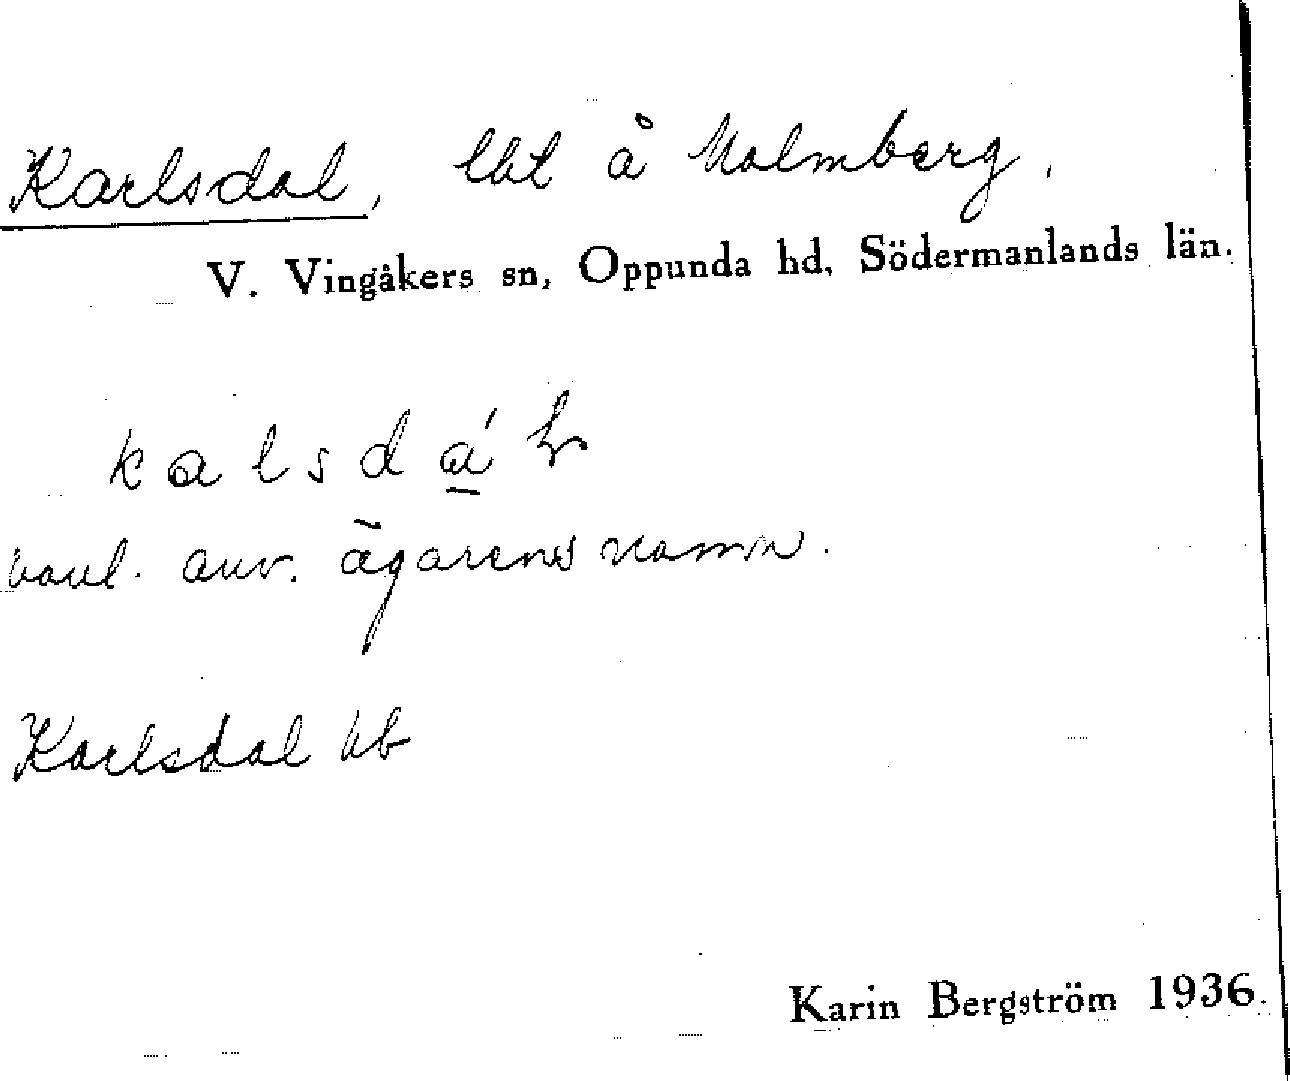 Karlsdal, lht å Malmberg.
V. Vingåkers sn, Oppunda hd, Södermanlands län.
k a l s d á̱
vanl. anv. ägarens namn.
Karlsdal hb
Karin Bergström 1936.